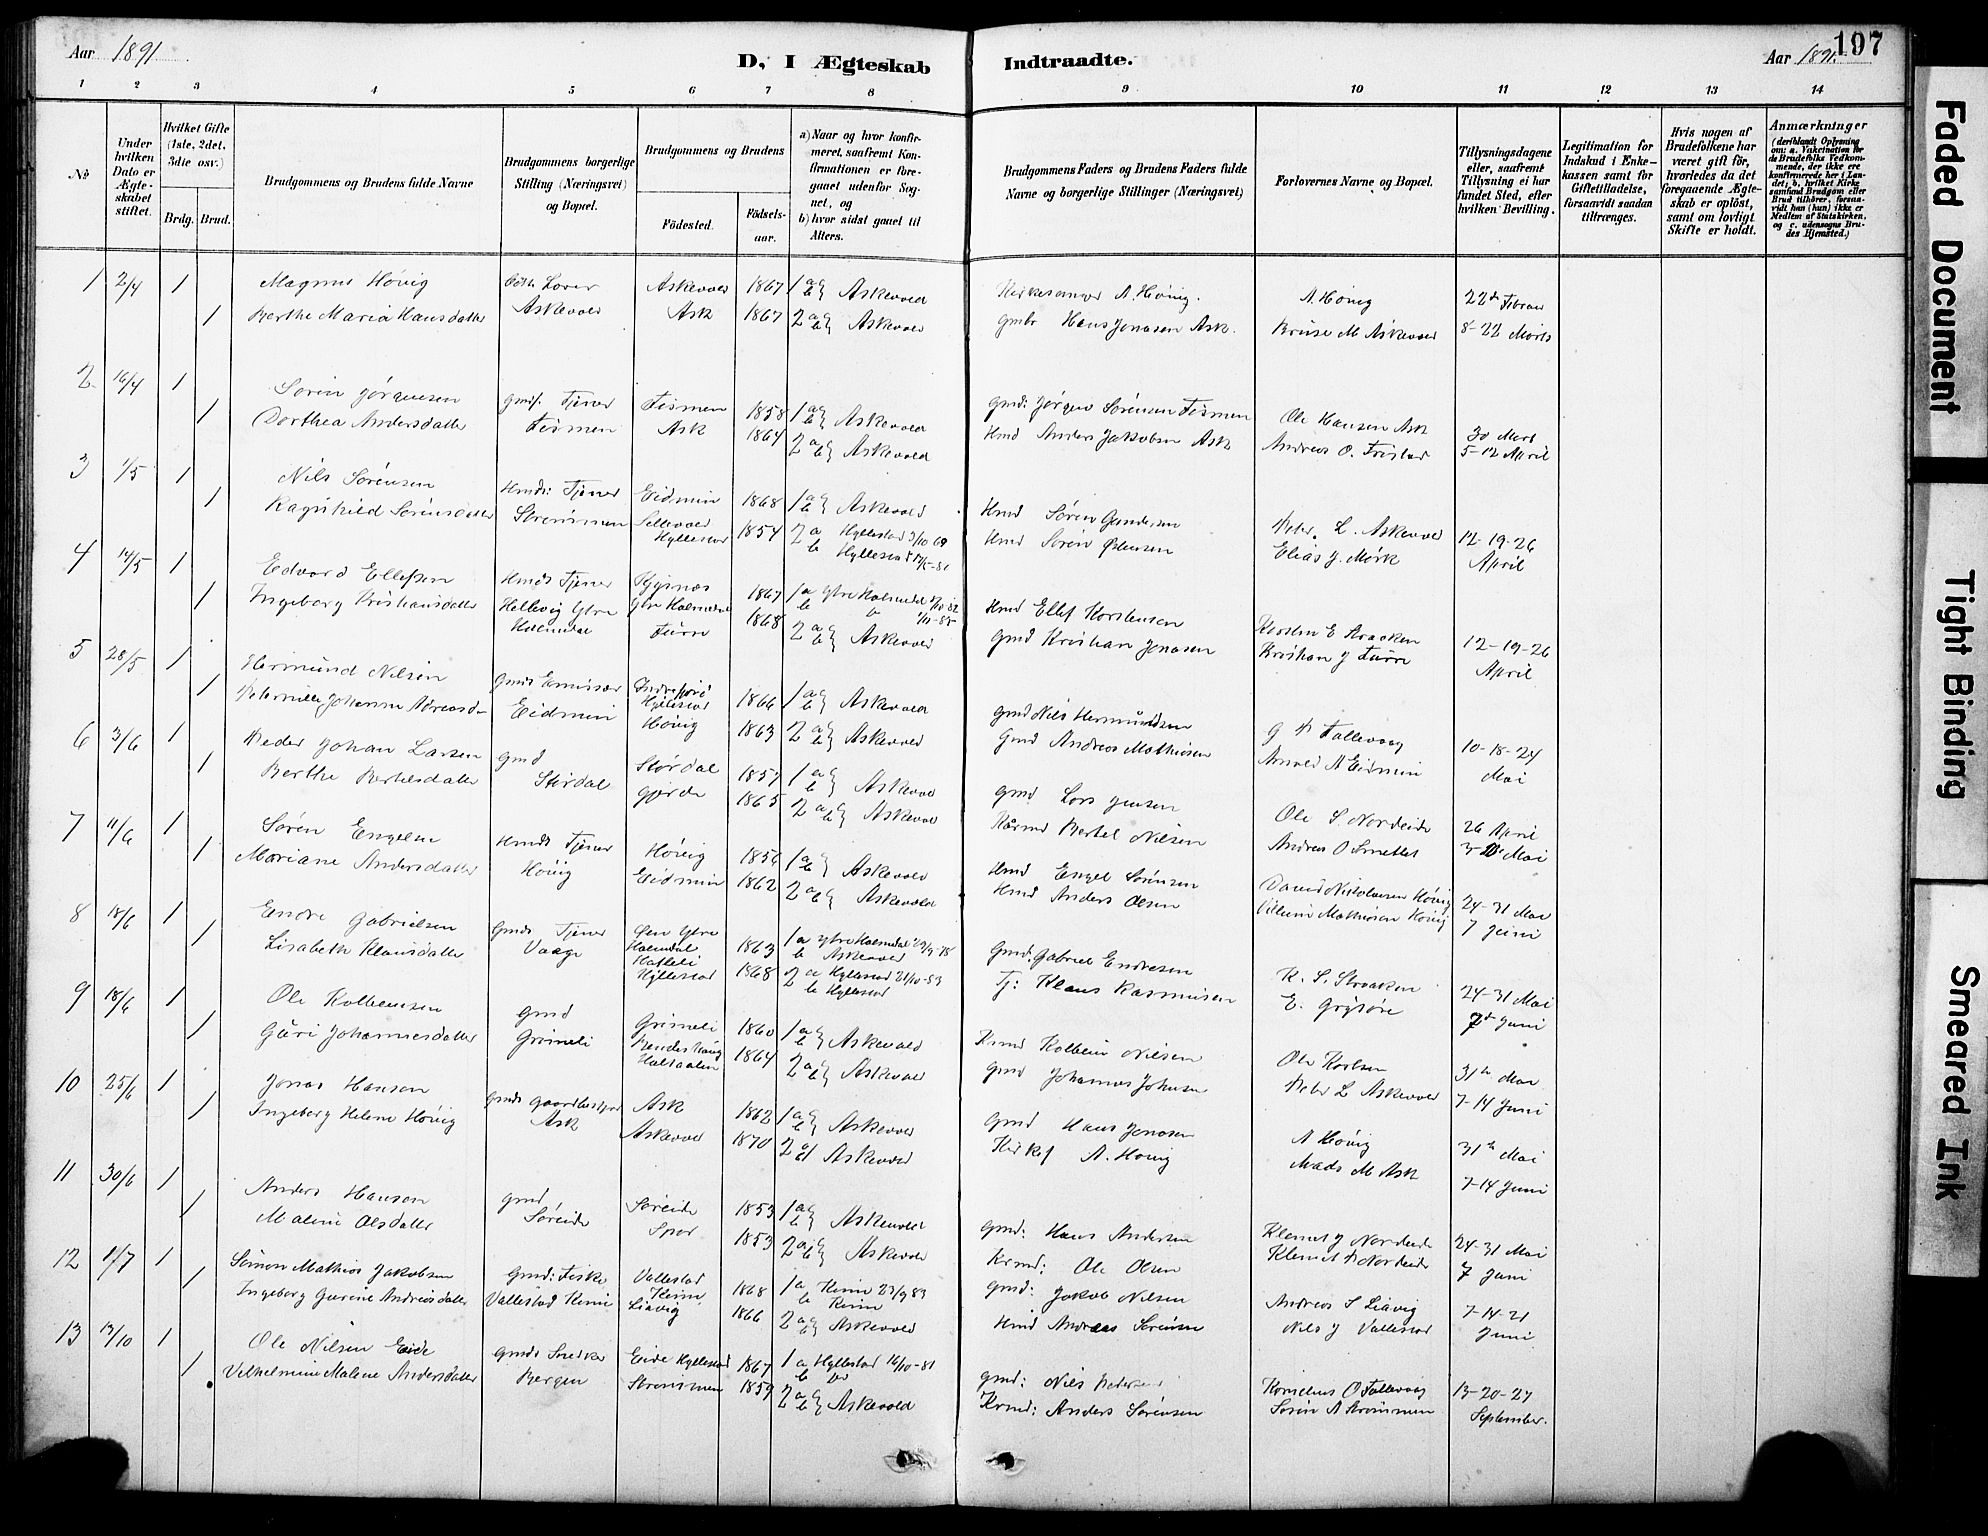 Aar 1891
D, I Ægteskab Indtraadte.
Aar 1891.
197
1 2 3 4 5 6 7 8 9 10 11 12 13 14
No
Under hvilken Dato er Ægteskabet stiftet.
Hvilket Gifte (1ste, 2det, 3die osv.)
Brdg. Brud.
Brudgommens og Brudens fulde Navne
Brudgommens borgerlige Stilling (Næringsvei) og Bopæl.
Brudgommens og Brudens
Födested.
Födselsaar.
a) Naar og hvor konfirmeret, saafremt Konfirmationen er foregaaet udenfor Sognet, og
b) hvor sidst gaaet til Alters.
Brudgommens Faders og Brudens Faders fulde Navne og borgerlige Stillinger (Næringsvei)
Forlovernes Navne og Bopæl.
Tillysningsdagene eller, saafremt Tillysning ei har fundet Sted, efter hvilken Bevilling.
Legitimation for Indskud i Enkekassen samt for Giftetilladelse, forsaavidt saadan tiltrænges.
Hvis nogen af Brudefolkene har været gift för, hvorledes da det foregaaende Ægteskab er oplöst, samt om lovligt Skifte er holdt.
Anmærkninger (deriblandt Oplysning om: a. Vakcination for de Brudefolks Vedkommende, der ikke ere konfirmerede her i Landet; b. hvilket Kirkesamfund Brudgom eller Brud tilhörer, forsaavidt han (hun) ikke er Medlem af Statskirken, og c. udensogns Brudes Hjemsted.)
1 2/4 1 Magnus Hövig Lærer Askevold 1867 1 a b Askevold Kirkesanger A. Hövig. A. Hövig 22de Febrar
1 Berthe Maria Hansdatter Askevold Ask 1867 2 a b Askevold gmbr Hans Jonasen Ask. M Askevold 8-22 Marts
2 16/4 1 Sörin Jörgensen Tjener 1858 1 a b Askevold Jörgen Sörensen Ole Hansen Ask 30 Mart
1 Dorthea Andersdatter Ask 1864 2 a b Askevold Hmd Anders Jakobsen Ask Andreas O. 5-12 April
3 1/5 1 Nils Sörensen Hmds: Tjener Eidmin 1868 1 a b Askevold Hmd Sören Gundersen Peter L. Askevold 12-19-26
1 Ragnhild Sörensdatter Strömmen Hyllestad 1854 2 a Hyllestad 3/10 69 Hmd Sörin Elias J. Mörk April
b Hyllestad
4 14/5 1 Edvard Ellefsen Hmds Tjener 1867 1 a Ytre Holmedal Hmd Ellef Korstensen 12-19-26
1 Ingeborg Kristiansdatter Hellevig Ytre Holmedal Furre 1868 2 a b Askevold gmd Kristian Jonasen Kristian J Furre April
5 28/5 1 Hermund Nilsen Gmds Emissær Hyllestad 1866 1 a b Askevold gmd Nils Hermundsen G Tallevaag 10-18-24
1 Peternille Johanne Eidmin Hövig 1863 2 a b Askevold Gmd Andreas Mathiesen Arnold A Eidmin Mai
6 3/6 1 Peder Johan Larsen gmd Stördal 1857 1 a b Askevold gmd Lars Jensen Ole S. Nordeide 26 April
1 Berthe Bertelsdatter Stördal gjerde 1865 2 a b Askevold Bertel Nilsen Andreas O 3-10 Mai
7 11/6 1 Sören Engelsen Hmds Tjener Hövig 1856 1 a b Askevold Hmd Engel Sörensen David Nikolaisen Hövig 24-31 Mai
1 Mariane Andersdatter Hövig Eidmin 1862 2 a b Askevold Hmd Anders Olsen Mathiesen Hövig 7 Juni
8 18/6 1 Endre Gabrielsen Gmds Tjener Ytre Holmedal 1863 1 a Ytre Holmedal b Askevold Gmd: Gabriel Endresen K. S. Straaken 24-31 Mai
1 Lisabeth Klausdatter Vaage Hatleli Hyllestad 1868 2 a Hyllestad 21/10-83 b Hyllestad Tj: Klaus Rasmussen E. Grytöre 7de Juni
9 18/6 1 Ole Kolbeinsen gmd Grimeli 1860 1 a b Askevold Kolbein Nilsen Ole 31te Mai
1 Guri Johannesdatter Grimeli 1864 2 a b Askevold gmd Johannes Johnsen Peter L Askevold 7-14 Juni
10 25/6 1 Jonas Hansen Ask 1862 1 a b Askevold gmd Hans Jonasen A Hövig 31te Mai
1 Ingeborg Helene Hövig Ask Askevold 1870 2 a b Askevold A. Hövig Mads M Ask 7-14 Juni
11 30/6 1 Anders Hansen gmd Söreide 1853 1 a b Askevold gmd: Hans Andersen Klemet J Nordeide 24-31 Mai
1 Maline Olsdatter Söreide Spor 1853 2 a b Askevold Krmd: Ole Olsen Klemet Nordeide 7 Juni
12 1/7 1 Simon Mathias Jakobsen gmd: Fisker Vallestad Kinn 1868 1 a Kinn 23/9 83 b Kinn gmd: Jakob Nilsen Andreas S Liavig 7-14-21
1 Ingeborg Gurine Andreasdatter Vallestad Kinn Liavig 1866 2 a b Askevold Hmd Andreas Sörensen Nils J Vallestad Juni
13 13/10 1 Ole Nilsen Eide gmds Snedker Eide Hyllestad 1867 1 a Hyllestad 16/10-81 b gmd: Nils Pedersen Kornelius O Tallevaag 13-20-27
1 Vilhelmine Malene Andersdatter Bergen Strömmen 1859 2 a b Askevold Krmd: Anders Sörensen Sörin A Strömmen September.
Faded Document
Tight Binding
Smeared Ink